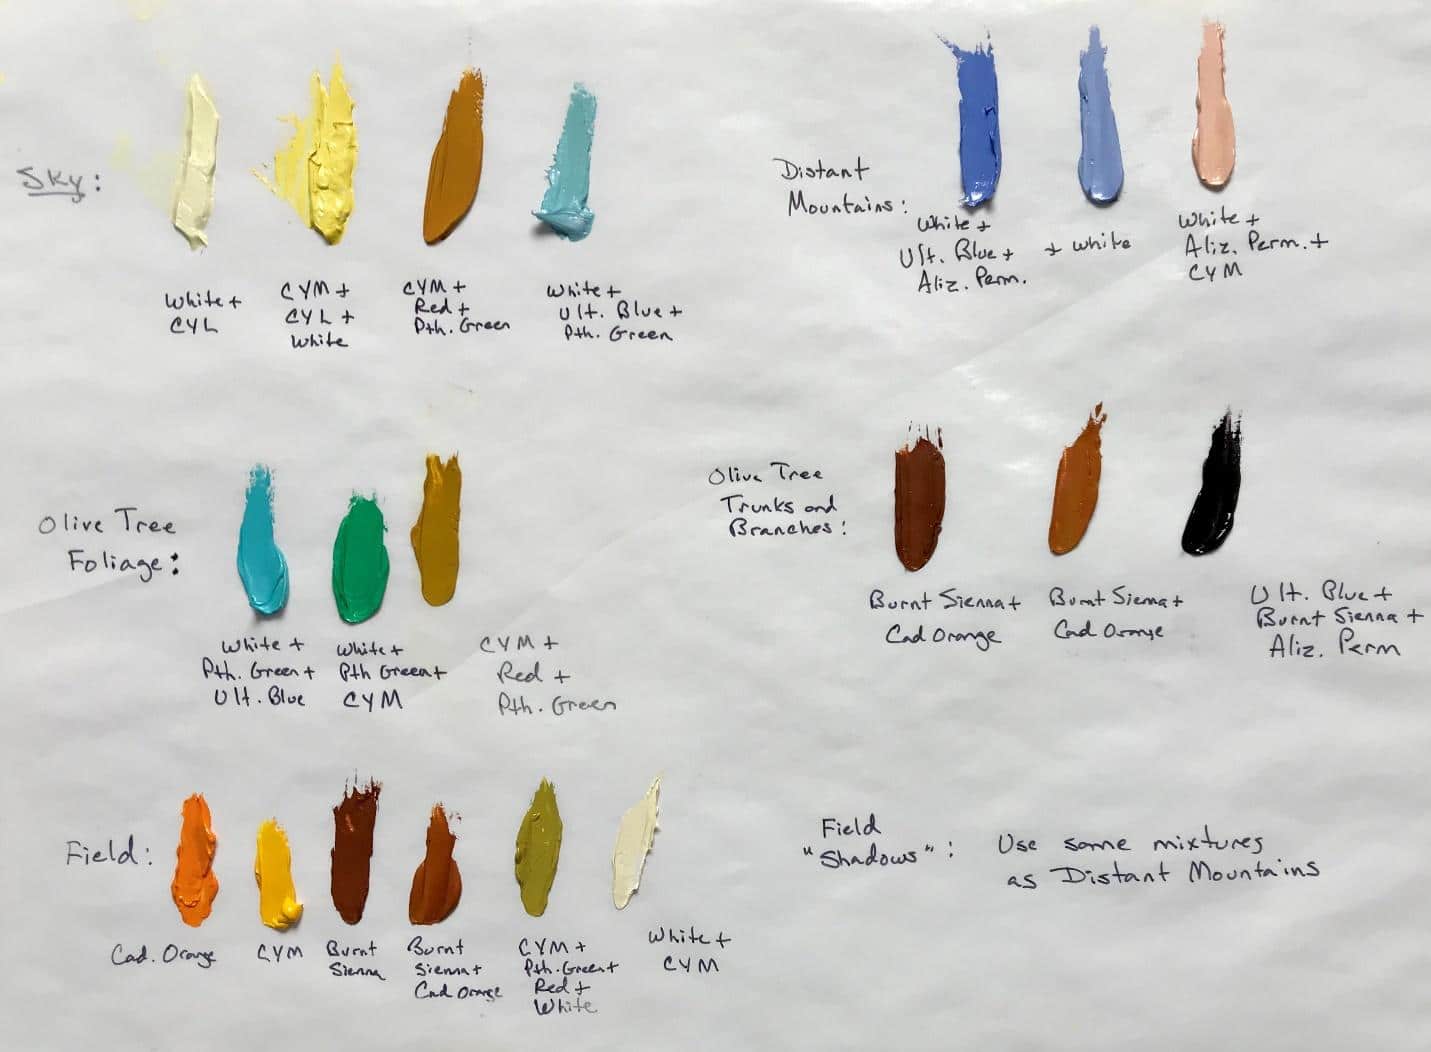 Sky:
White +
CYL
CYM +
CYL +
White
CYM +
Red +
Pth. Green
White +
Ult. Blue +
Pth. Green
Distant
Mountains:
White +
Ult. Blue +
Aliz. Perm.
+ White
White +
Aliz. Perm. +
CYM
Olive Tree
Foliage:
White +
Pth. Green +
Ult. Blue
White +
Pth Green +
CYM
CYM +
Red +
Pth. Green
Olive Tree
Trunks and
Branches:
Burnt Sienna +
Cad Orange
Burnt Sienna +
Cad Orange
Ult. Blue +
Burnt Sienna +
Aliz. Perm
Field:
Cad. Orange
CYM
Burnt
Sienna
Burnt
Sienna +
Cad Orange
CYM +
Pth. Green +
Red +
White
White +
CYM
Field
"Shadows":
Use same mixtures
as Distant Mountains